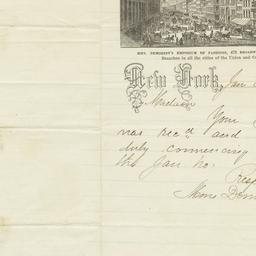 MME. DEMOREST'S EMPORIUM OF FASHIONS, 473 BROADW
Branches in all the cities of the Union and C
New York, Jan
Madam
Your
was recd and
duly commencing
the Jan No.
Resp
Mme Dem